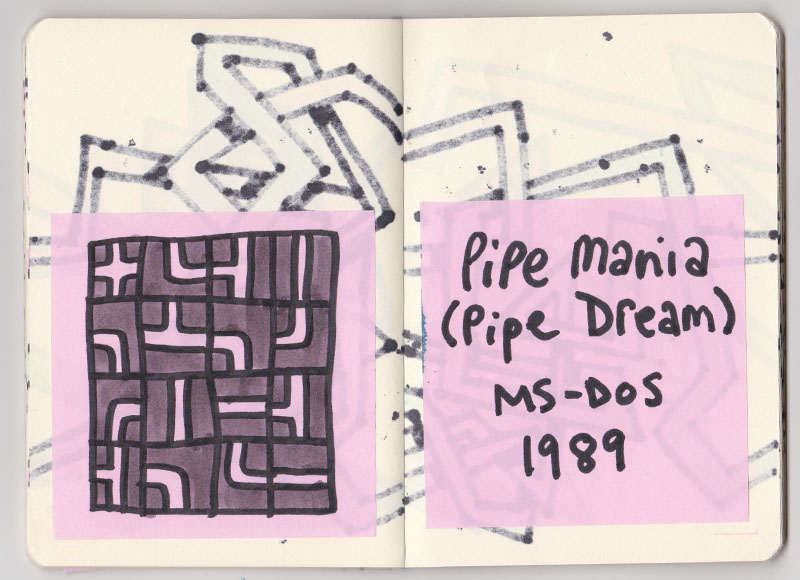 Pipe Mania
(Pipe Dream)
MS-DOS
1989